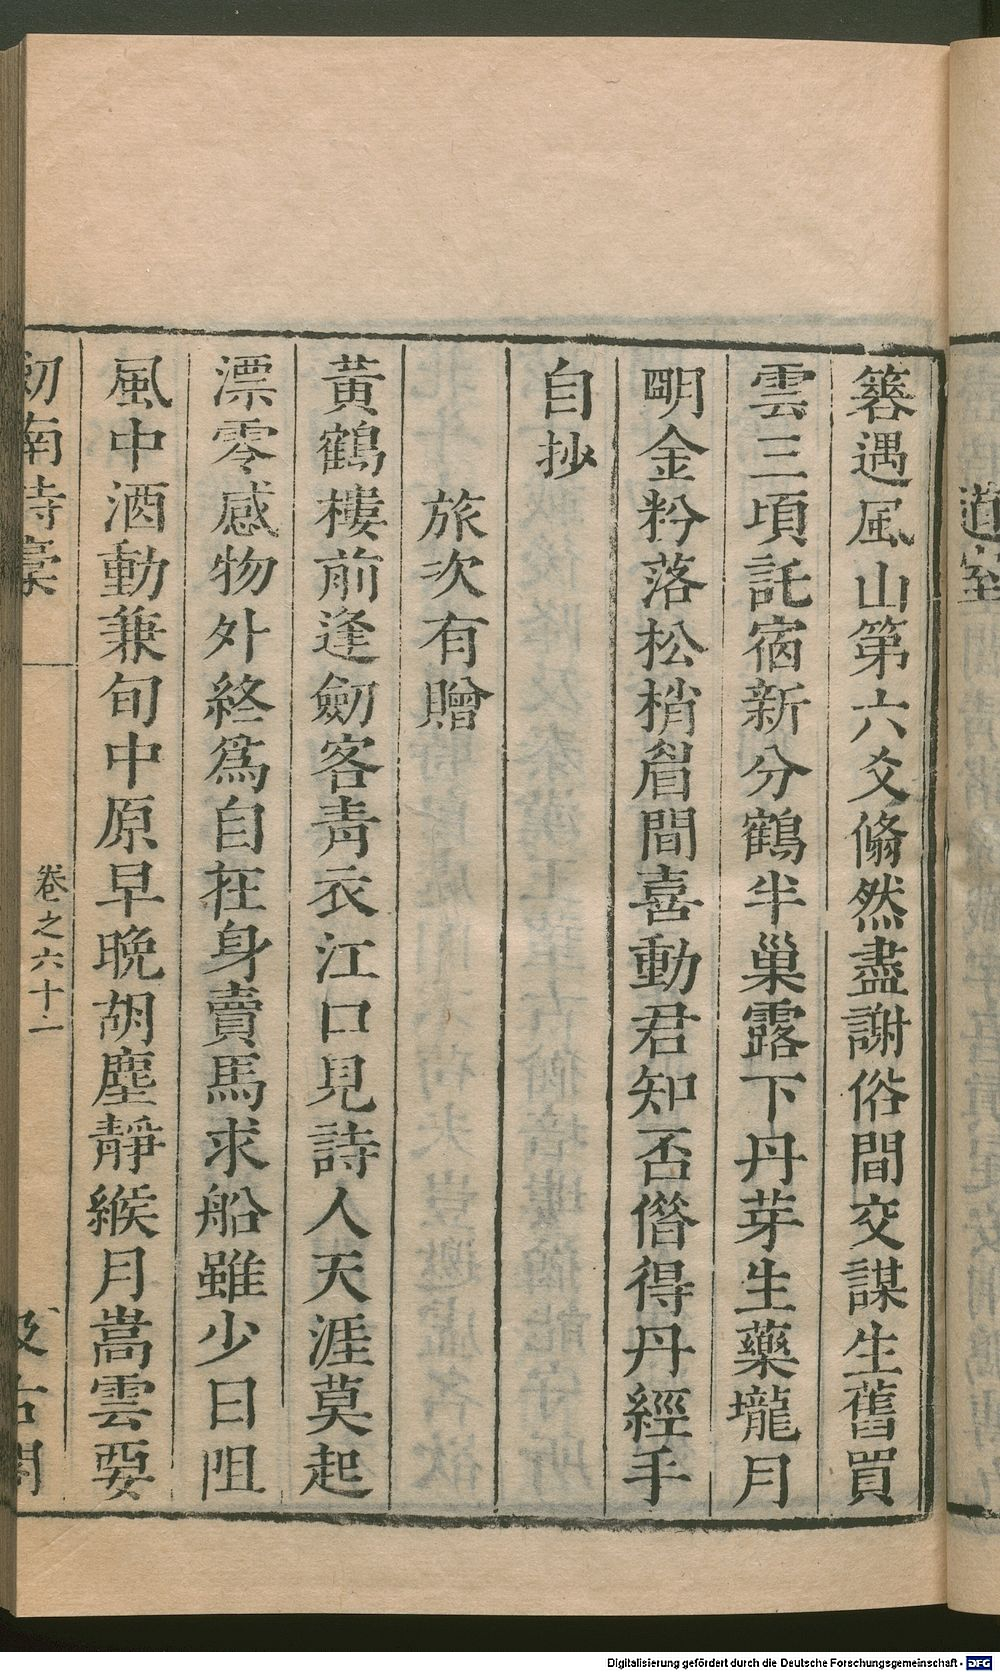 道室
簭遇風山第六爻翛然盡謝俗間交謀生舊買
雲三頃託宿新分鶴半巢露下丹芽生藥壠月
明金粉落松梢眉間喜動君知否僭得丹經手
自抄
旅次有贈
黃鶴樓前逢劒客靑衣江口見詩人天涯莫起
漂零感物外終爲自在身賣馬求船雖少日阻
風中酒動兼旬中原早晚胡塵靜緱月嵩雲要
劒南詩稾
卷之六十一
汲古閣
Digitalisierung gefördert durch die Deutsche Forschungsgemeinschaft - DFG